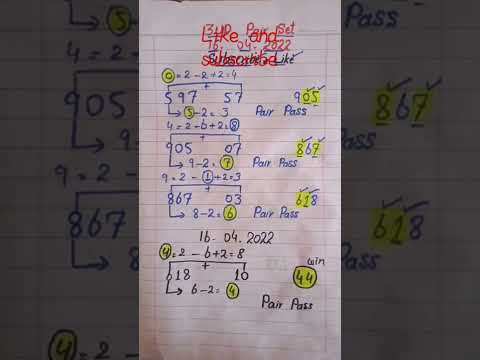 3UP Pair Set
16. 04. 2022
Like and
subscribe
Subscribe Like
0 = 2 - 2 + 2 = 4
+
597 57 905
5 - 2 = 3 Pair Pass
4 = 2 - 6 + 2 = 8
+
905 07 867
9 - 2 = 7 Pair Pass
9 = 2 - 1 + 2 = 3
+
867 03 618
8 - 2 = 6 Pair Pass
16. 04. 2022
4 = 2 - 6 + 2 = 8 win
+
618 10 44
6 - 2 = 4 Pair Pass
5
4 = 2
905
9
9 = 2 -
867
4
867
Pass
618
Pass